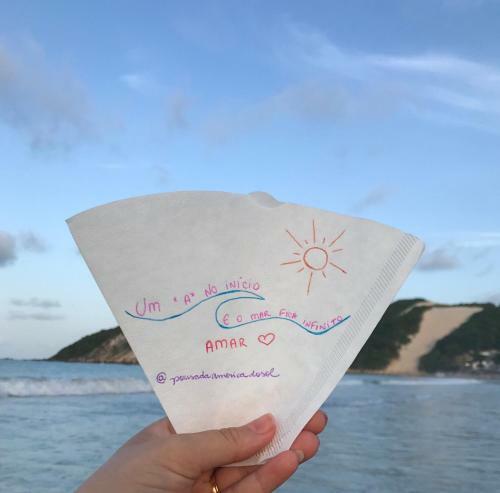 UM "A" NO INÍCIO
E O MAR FICA INFINITO
AMAR ♡
@pousadaamericadosol